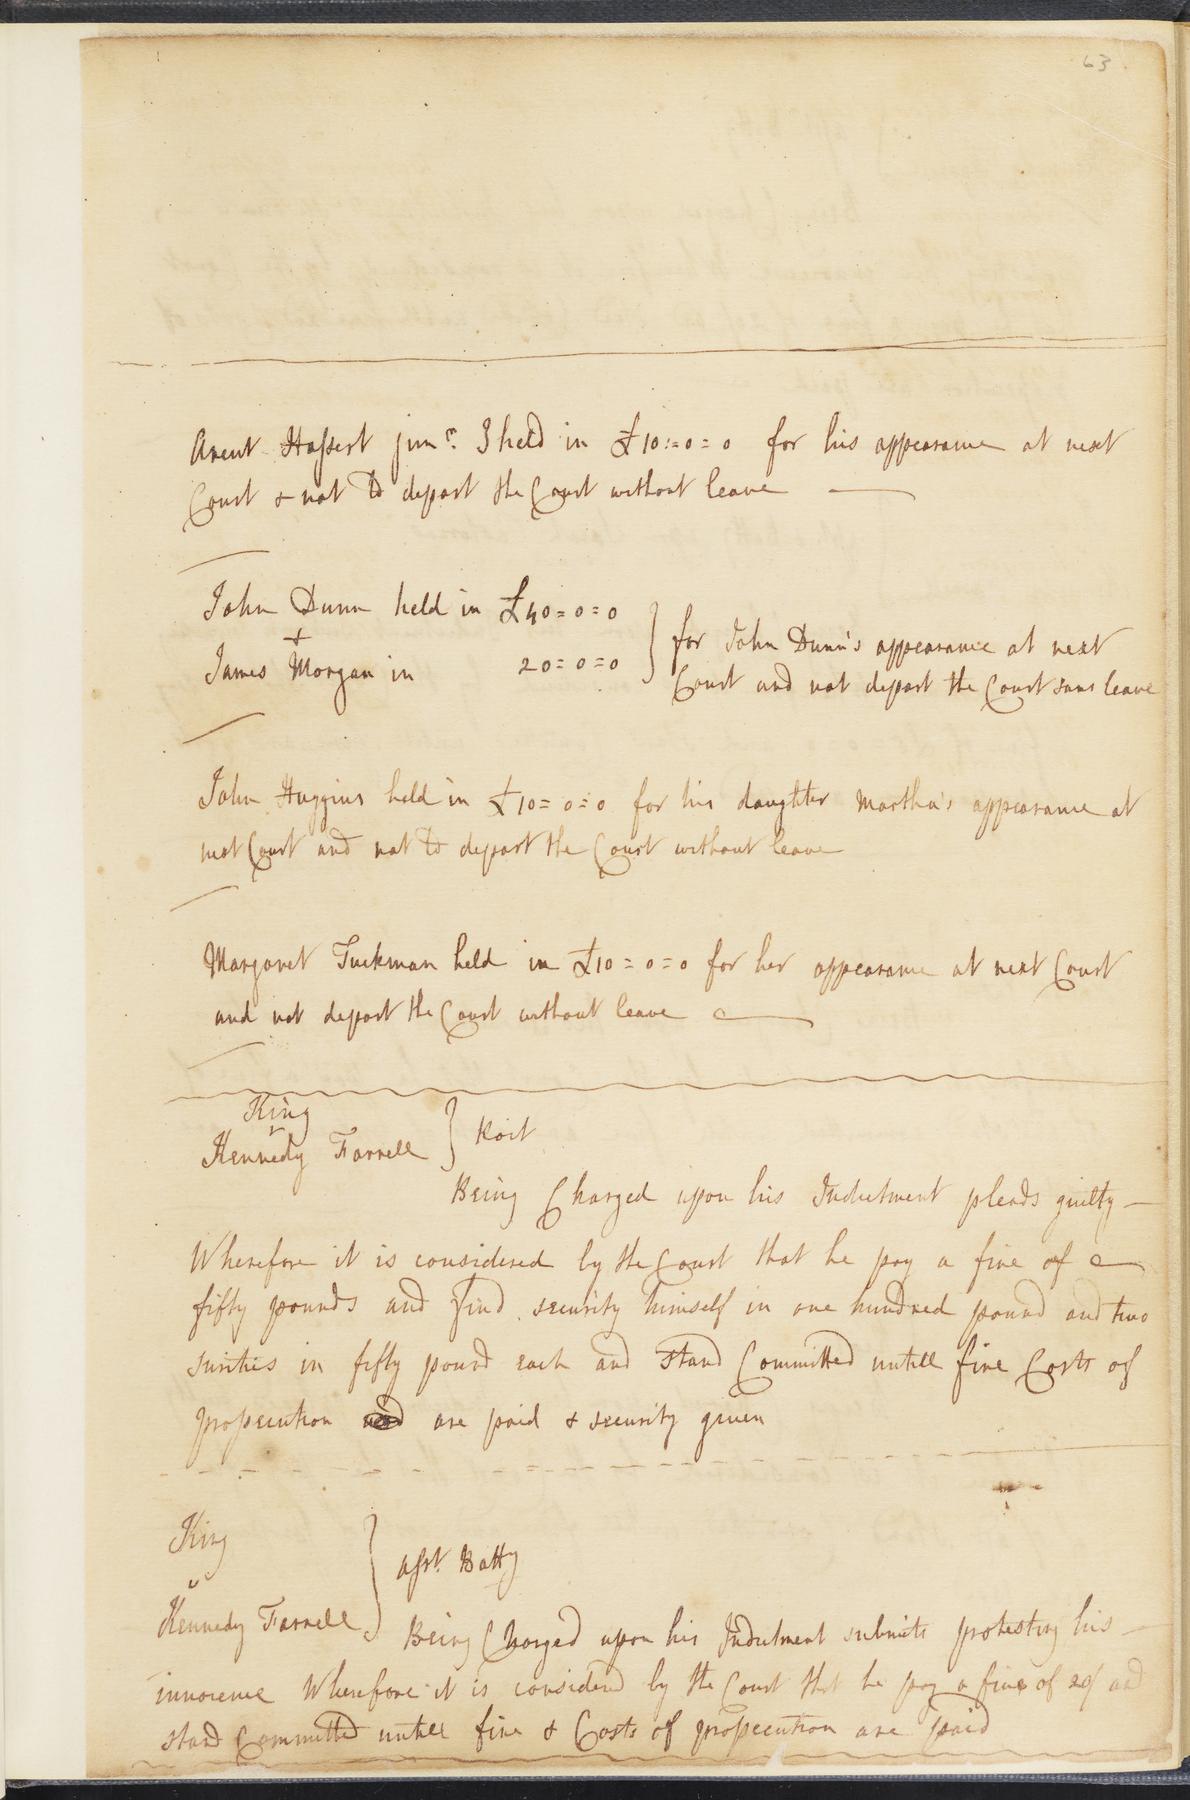 63
Arent Hassert junr. held in £10:=0=0 for his appearance at next
Court & not to depart the Court without leave
John Dunn held in £40=0=0
&
James Morgan in 20=0=0
for John Dunn's appearance at next
Court and not depart the Court sans leave
John Huggins held in £10=0=0 for his daughter Martha's appearance at
next Court and not to depart the Court without leave
Margaret Tuckman held in £10=0=0 for her appearance at next Court
and not depart the Court without leave
King
v
Kennedy Farrell } Roit
Being Charged upon his Indictment pleads guilty
Wherefore it is considered by the Court that he pay a fine of
fifty pounds and find security himself in one hundred pound and two
surities in fifty pound each and stand Committed untill fine Costs of
prosecution are paid & security given
King
v
Kennedy Farrell } asst. Batty
Being Charged upon his Indictment submits protesting his
innocence Wherefore it is considered by the Court that he pay a fine of 20/ and
stand Committed untill fine & Costs of prosecution are paid